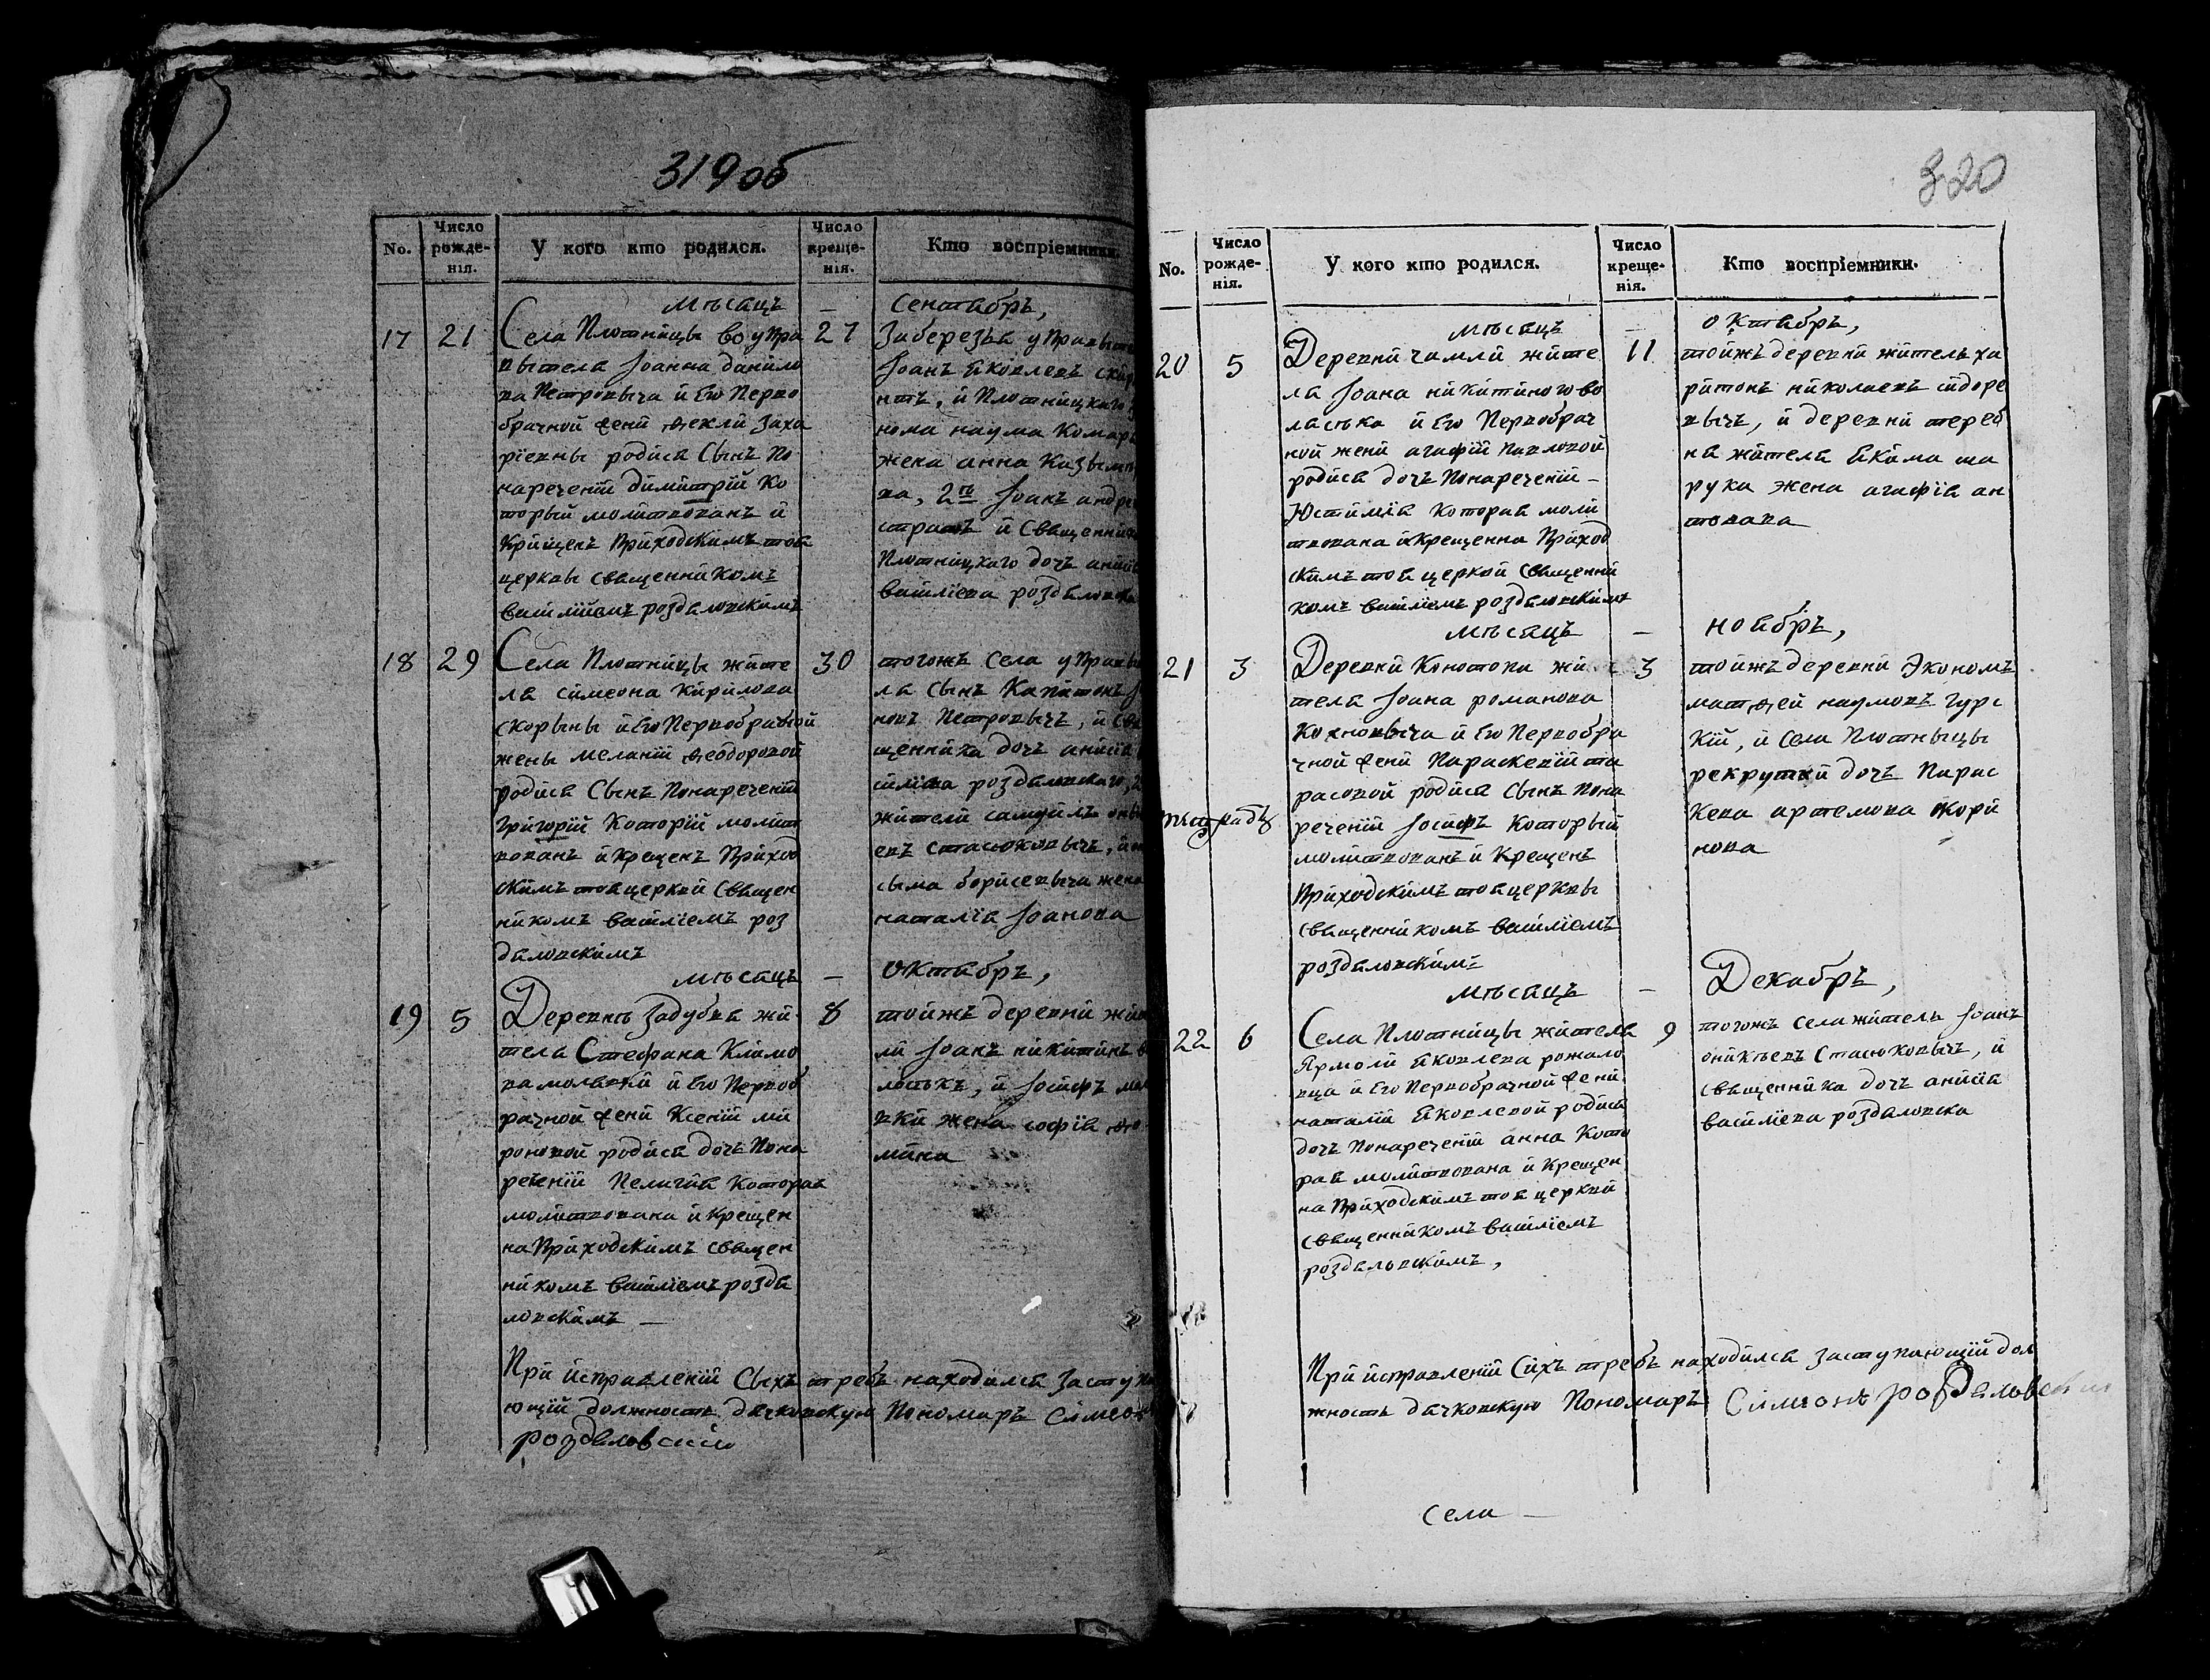 319об
No.
Число рожде-нія.
У кого кто родился.
Число креще-нія.
Кто воспріемники.
мѣсяцъ — сентябрь,
17 21 27
Села Плотницы во упра
вытеля Іоанна данило
ва Петровыча и Его Перво
брачной жени Ѳекли Заха
ріевны родися Сынъ По
нареченіи димитрій Ко
торый молитвованъ и
Крищенъ Приходскимъ тоя
церквы священникомъ
василіемъ роздяловскимъ
Заберезья управыте
Іоанъ Яковлевъ
нтъ, и Плотницкаго
нома наума Комар
жена анна Казым
ва, 2й Іоанъ андре
и Священник
Плотницкаго дочъ аниія
василіева роздяловска
18 29 30
Села Плотницы жите
ля симеона Кирилова
скорыны и Его Первобрачной
жены меланіи Ѳеодоровой
родися Сынъ Понареченіи
Григорій Которій молит
вованъ и Крещенъ Приход
скимъ тоя церкви Священ
никомъ василіемъ роз
дяловскимъ
тогожъ Села управы
ля Сынъ Капитонъ
новъ Петровычъ, и Свя
щенника дочъ анисія
силіева роздяловская, 2
жители самуилъ
евъ стасюковычъ, и
сыма борисевыча жена
наталія Іоанова
мѣсяцъ — Октябрь,
19 5 8
Деревнѣ Задубья жи
теля Стефана Климо
ва и Его Первоб
рачной жени Ксеніи ми
роновой родися дочъ Пона
реченіи Пелагія Которая
молитвована и Крещен
на Приходскимъ священ
никомъ василіемъ роздя
ловскимъ —
тоижъ деревни жи
ли Іоанъ никитинъ в
ласюкъ, и Іосифъ
вки жена софія Ѳо
мина
При исправленіи Сыхъ требъ находился Заступа
ющій должность дячковскую Пономаръ Симеон
роздяловскій
320
No.
Число рожде-нія.
У кого кто родился.
Число креще-нія.
Кто воспріемники.
мѣсяцъ — октябрь,
20 5 11
Деревни чамли жите
ля Іоана никитиного во
ласюка и Его Первобрач
ной жени агафіи Павловой
родися дочъ Понареченіи —
Юстимія Которая моли
твована и Крещенна Приход
скимъ тоя церкви Священни
комъ василіемъ роздяловскимъ
тоижъ деревни житель ха
ритонъ николаевъ сидоре
вычъ, и деревни тереб
на жителя Якима ша
руха жена агафія ан
тонова
мѣсяцъ — ноябрь,
21 3 3
Деревни Конотопа жи
теля Іоана романова
Кохновыча и Его Первобра
чной жени Параскевіи та
расовой родися Сынъ Пона
реченіи Іосифъ Который
молитвованъ и Крещенъ
Приходскимъ тоя церквы
священникомъ василіемъ
роздяловскимъ
тоижъ деревни Экономъ
матѳей наумовъ Гурс
кій, и Села Плотныцы
рекрутки дочъ Парас
кева артемова жори
нова
мѣсяцъ — Декабрь,
22 6 9
Села Плотницы жителя
Ярмоли Яковлева рожало
вца и Его Первобрачной жени
наталіи Яковлевой родися
дочъ Понареченіи анна Кото
рая молитвована и Крещен
на Приходскимъ тоя церкви
священникомъ василіемъ
роздяловскимъ,
тогожъ села житель Іоанъ
оникѣевъ Стасюковычъ, и
священника дочъ анисія
василіева роздяловска
При исправленіи Сихъ требъ находился заступающій дол
жность дячковскую Пономаръ Симеонъ роздяловскій
села —